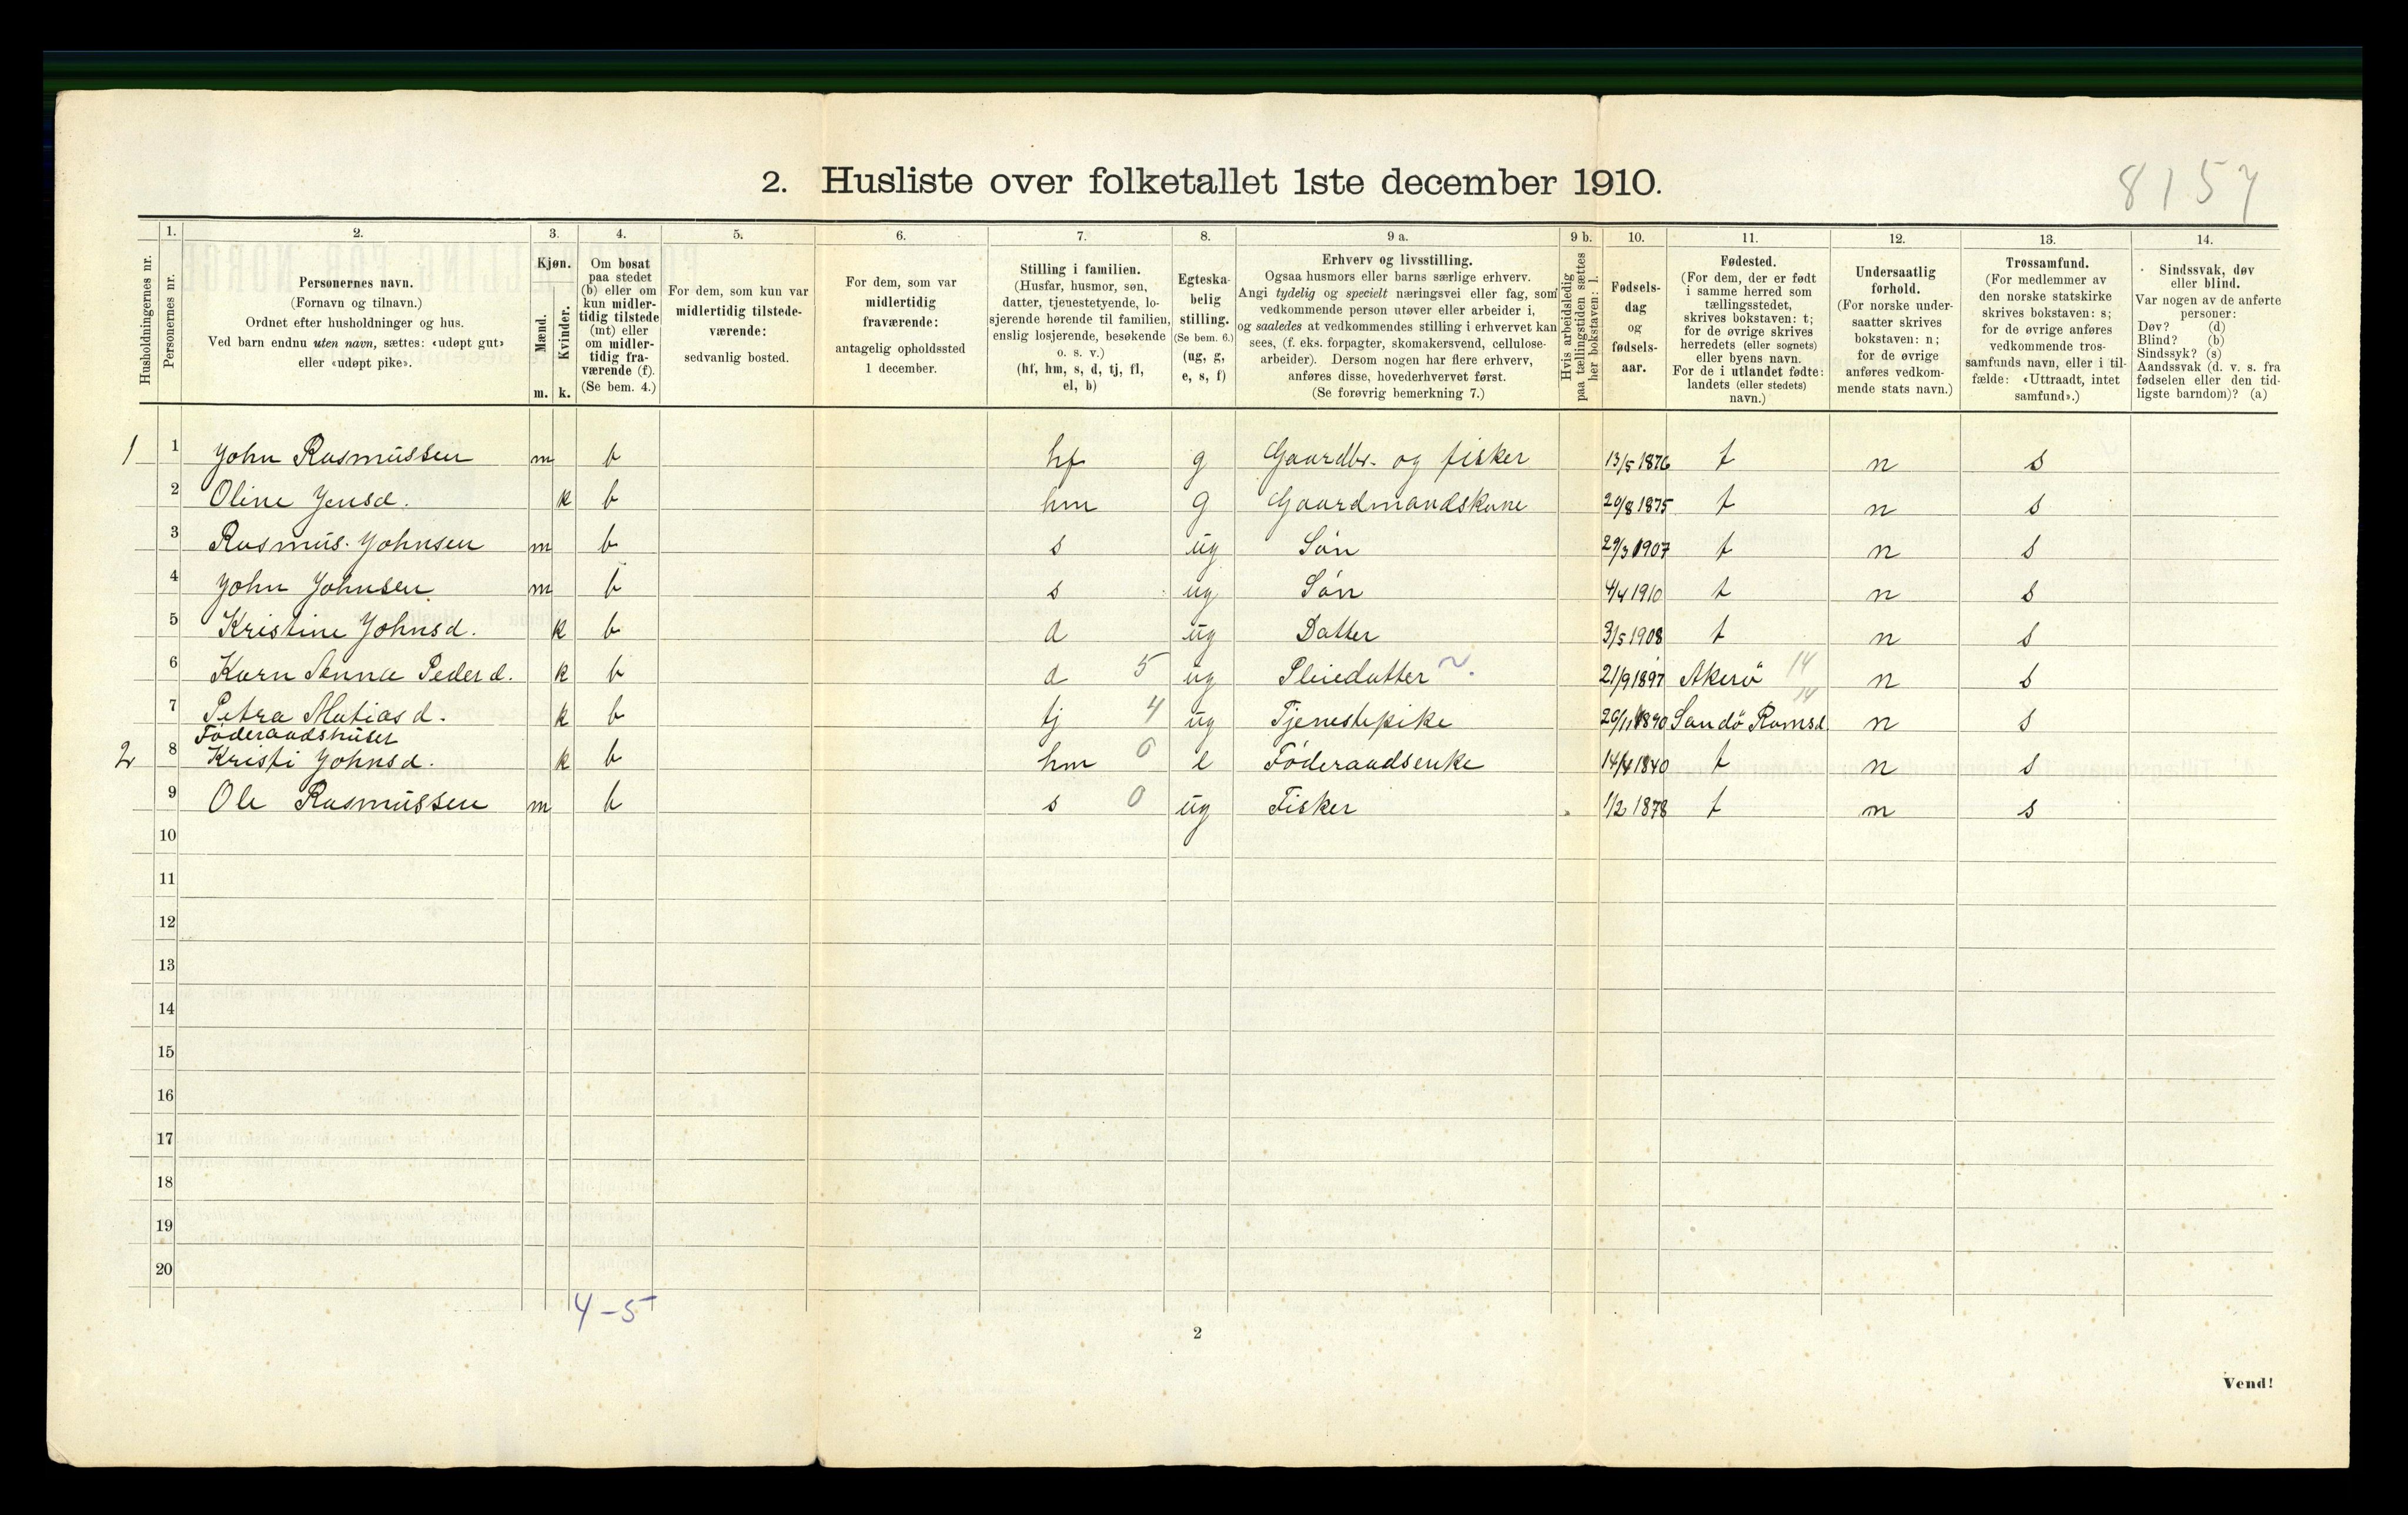 8157
2. Husliste over folketallet 1ste december 1910.
Husholdningernes nr.
1.
Personernes nr.
2.
Personernes navn.
(Fornavn og tilnavn.)
Ordnet efter husholdninger og hus.
Ved barn endnu uten navn, sættes: «udøpt gut»
eller «udøpt pike».
3.
Kjøn.
Mænd.
Kvinder.
m. k.
4.
Om bosat
paa stedet
(b) eller om
kun midler-
tidig tilstede
(mt) eller
om midler-
tidig fra-
værende (f).
(Se bem. 4.)
5.
For dem, som kun var
midlertidig tilstede-
værende:
sedvanlig bosted.
6.
For dem, som var
midlertidig
fraværende:
antagelig opholdssted
1 december.
7.
Stilling i familien.
(Husfar, husmor, søn,
datter, tjenestetyende, lo-
sjerende hørende til familien,
enslig losjerende, besøkende
o. s. v.)
(hf, hm, s, d, tj, fl,
el, b)
8.
Egteska-
belig
stilling.
(Se bem. 6.)
(ug, g,
e, s, f)
9 a.
Erhverv og livsstilling.
Ogsaa husmors eller barns særlige erhverv.
Angi tydelig og specielt næringsvei eller fag, som
vedkommende person utøver eller arbeider i,
og saaledes at vedkommendes stilling i erhvervet kan
sees, (f. eks. forpagter, skomakersvend, cellulose-
arbeider). Dersom nogen har flere erhverv,
anføres disse, hovederhvervet først.
(Se forøvrig bemerkning 7.)
9 b.
Hvis arbeidsledig
paa tællingstiden sættes
her bokstaven: l.
10.
Fødsels-
dag
og
fødsels-
aar.
11.
Fødested.
(For dem, der er født
i samme herred som
tællingsstedet,
skrives bokstaven: t;
for de øvrige skrives
herredets (eller sognets)
eller byens navn.
For de i utlandet fødte:
landets (eller stedets)
navn.)
12.
Undersaatlig
forhold.
(For norske under-
saatter skrives
bokstaven: n;
for de øvrige
anføres vedkom-
mende stats navn.)
13.
Trossamfund.
(For medlemmer av
den norske statskirke
skrives bokstaven: s;
for de øvrige anføres
vedkommende tros-
samfunds navn, eller i til-
fælde: «Uttraadt, intet
samfund».)
14.
Sindssvak, døv
eller blind.
Var nogen av de anførte
personer:
Døv? (d)
Blind? (b)
Sindssyk? (s)
Aandssvak (d. v. s. fra
fødselen eller den tid-
ligste barndom)? (a)
1 1 John Rasmussen m b hf g Gaardbr. og fisker 13/5 1876 t n s
2 Oline Jensd. k b hm g Gaardmandskone 20/8 1875 t n s
3 Rasmus Johnsen m b s ug Søn 29/3 1907 t n s
4 John Johnsen m b s ug Søn 4/4 1910 t n s
5 Kristine Johnsd. k b d ug Datter 3/5 1908 t n s
6 Karn Anna Pederd. k b d 5 ug Pleiedatter 21/9 1897 Akerö 14 n s
7 Petra Matiasd. k b tj 4 ug Tjenestepike 20/11 1890 Sandö Romsd. 14 n s
Föderaadshuset
2 8 Kristi Johnsd. k b hm 0 e Föderaadsenke 14/4 1840 t n s
9 Ole Rasmussen m b s 0 ug Fisker 1/2 1878 t n s
10
11
12
13
14
15
16
17
18
19
20
4-5
2
Vend!